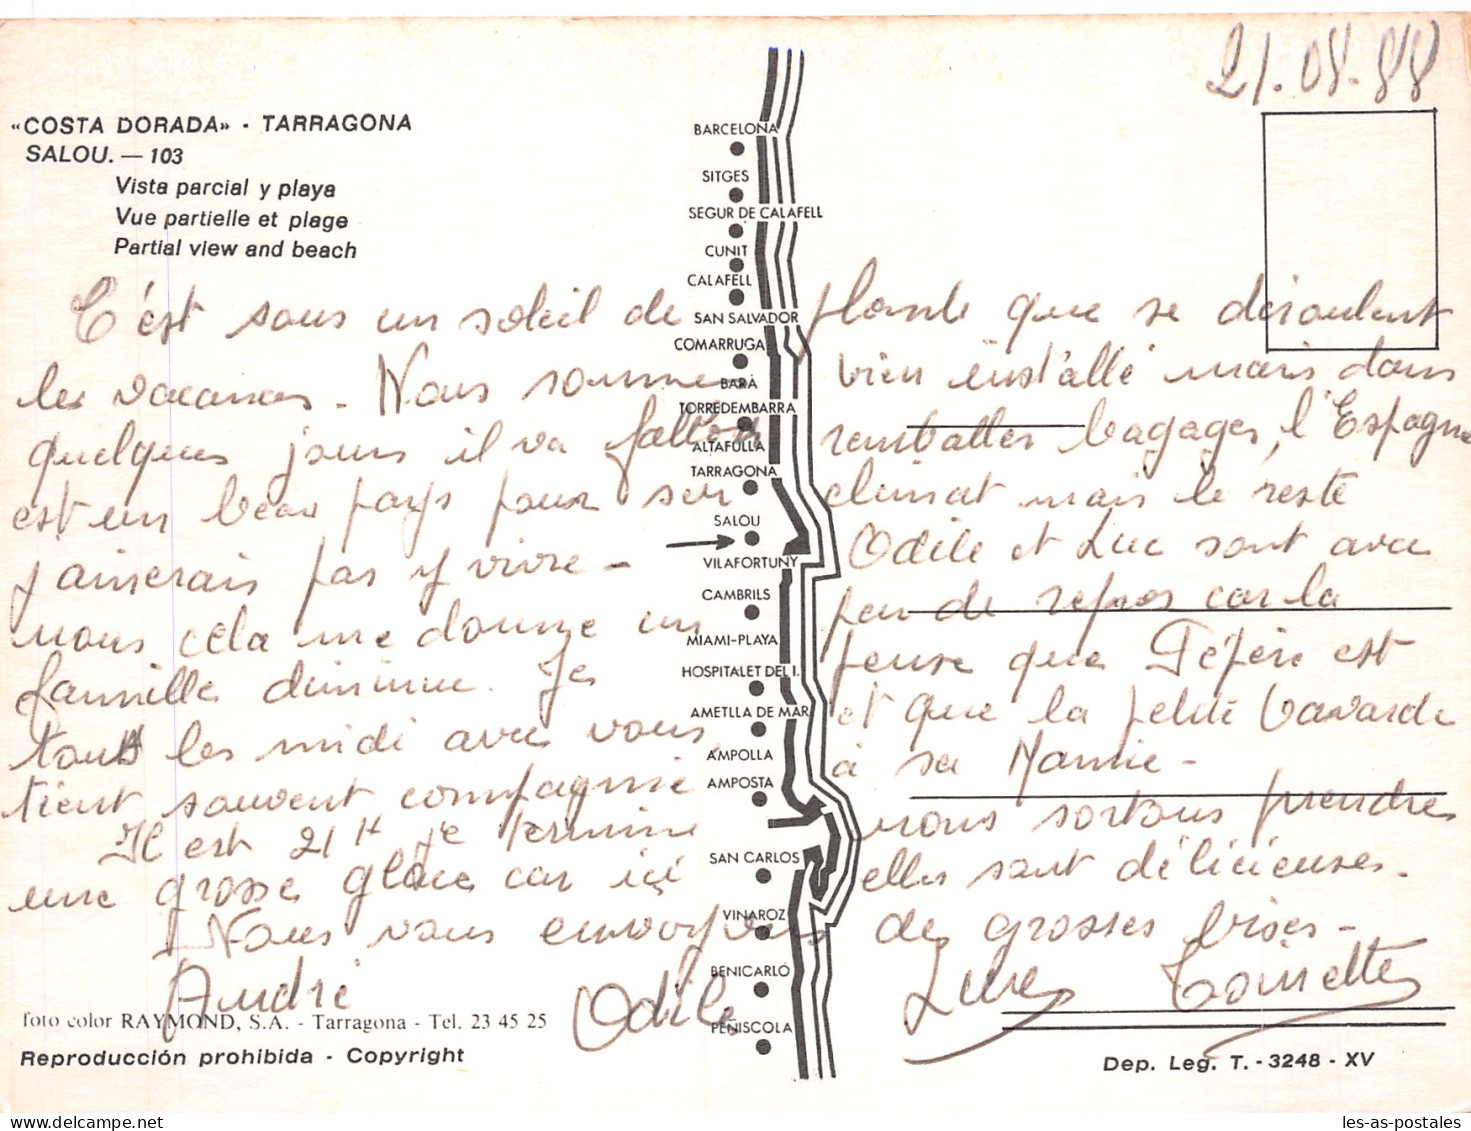 21.08.88
«COSTA DORADA» - TARRAGONA
SALOU. — 103
Vista parcial y playa
Vue partielle et plage
Partial view and beach
BARCELONA
SITGES
SEGUR DE CALAFELL
CUNIT
CALAFELL
SAN SALVADOR
COMARRUGA
BARÀ
TORREDEMBARRA
ALTAFULLA
TARRAGONA
SALOU
VILAFORTUNY
CAMBRILS
MIAMI-PLAYA
HOSPITALET DEL I.
AMETLLA DE MAR
AMPOLLA
AMPOSTA
SAN CARLOS
VINAROZ
BENICARLÓ
PEÑISCOLA
C'est sous un soleil de plomb que se déroulent
les vacances. Nous sommes bien installé mais dans
quelques jours il va falloir remballer bagages, l'Espagne
est un beau pays pour son climat mais le reste
j'aimerais pas y vivre - Odile et Luc sont avec
nous cela me donne un peu de repos car la
famille diminue. Je pense que Pépère est
tous les midi avec vous et que la petite bavarde
tient souvent compagnie à sa Mamie -
Il est 21 H je termine nous sortons prendre
une grosse glace car ici elles sont délicieuses.
Nous vous envoyons de grosses bises -
André Odile Luc Toinette
foto color RAYMOND, S.A. - Tarragona - Tel. 23 45 25
Reproducción prohibida - Copyright
Dep. Leg. T. - 3248 - XV
les-as-postales